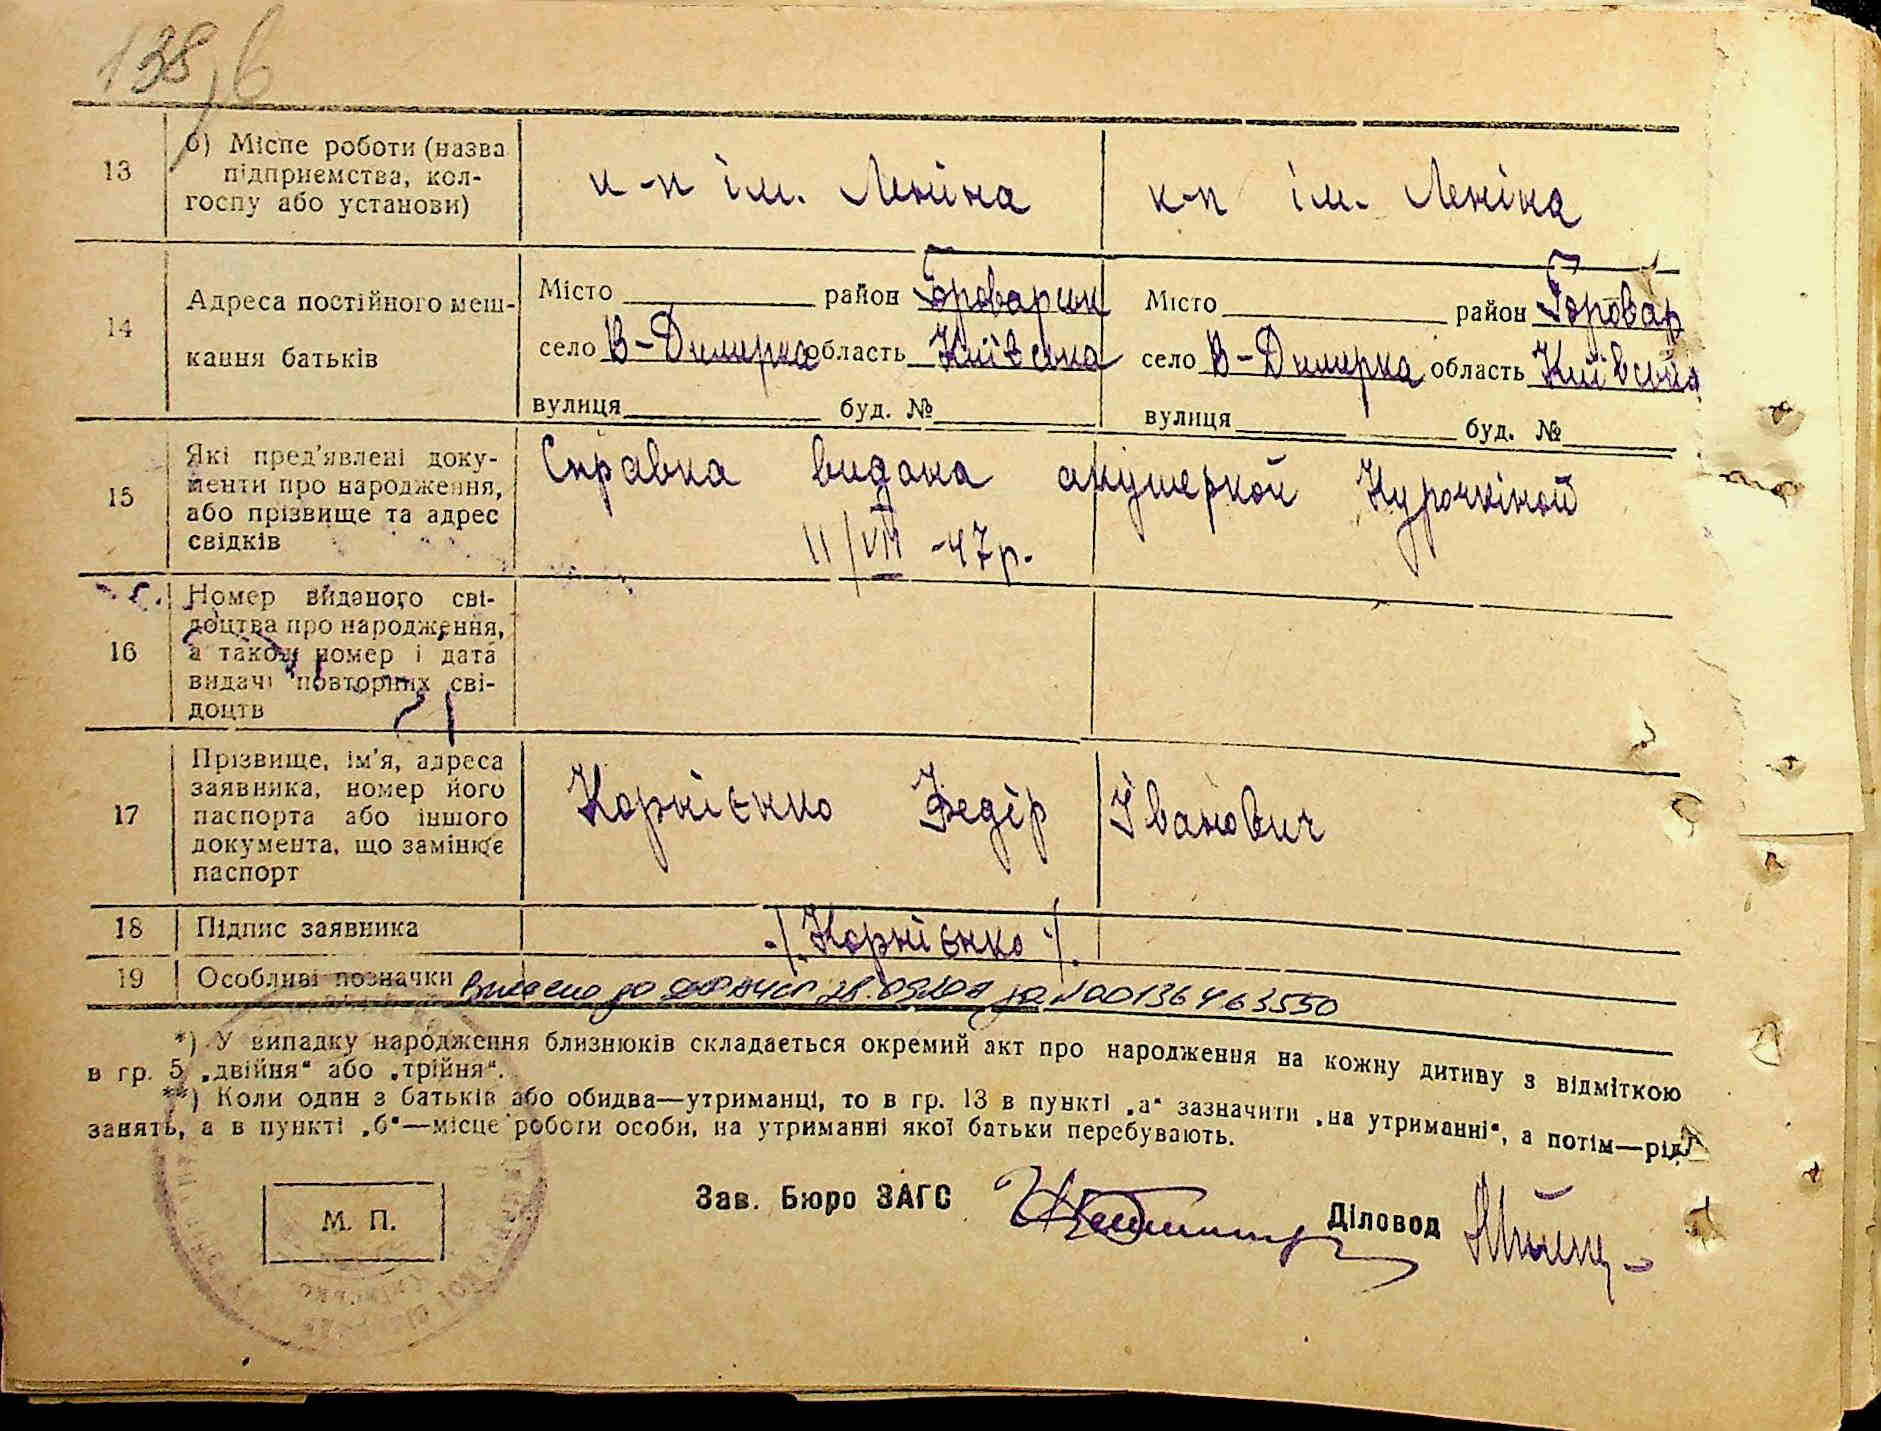 138, б
13 б) Місце роботи (назва підприємства, колгоспу або установи)
к-п ім. Леніна к-п ім. Леніна
14 Адреса постійного мешкання батьків
Місто район Броварськ Місто район Бровар
село В-Димерка область Київська село В-Димерка область Київська
вулиця буд. № вулиця буд. №
15 Які пред'явлені документи про народження, або прізвище та адрес свідків
Справка видана акушеркой Курочкіной
11/VII -47р.
16 Номер виданого свідоцтва про народження, а також номер і дата видачі повторних свідоцтв
17 Прізвище, ім'я, адреса заявника, номер його паспорта або іншого документа, що замінює паспорт
Корнієнко Федір Іванович
18 Підпис заявника ./Корнієнко/.
19 Особливі позначки Внесено до ДРАЦСГ за №00136463550
*) У випадку народження близнюків складається окремий акт про народження на кожну дитину з відміткою
в гр. 5 „двійня“ або „трійня“.
**) Коли один з батьків або обидва—утриманці, то в гр. 13 в пункті „а“ зазначити „на утриманні“, а потім—рід
занять, а в пункті „б“—місце роботи особи, на утриманні якої батьки перебувають.
Зав. Бюро ЗАГС Діловод
М. П.